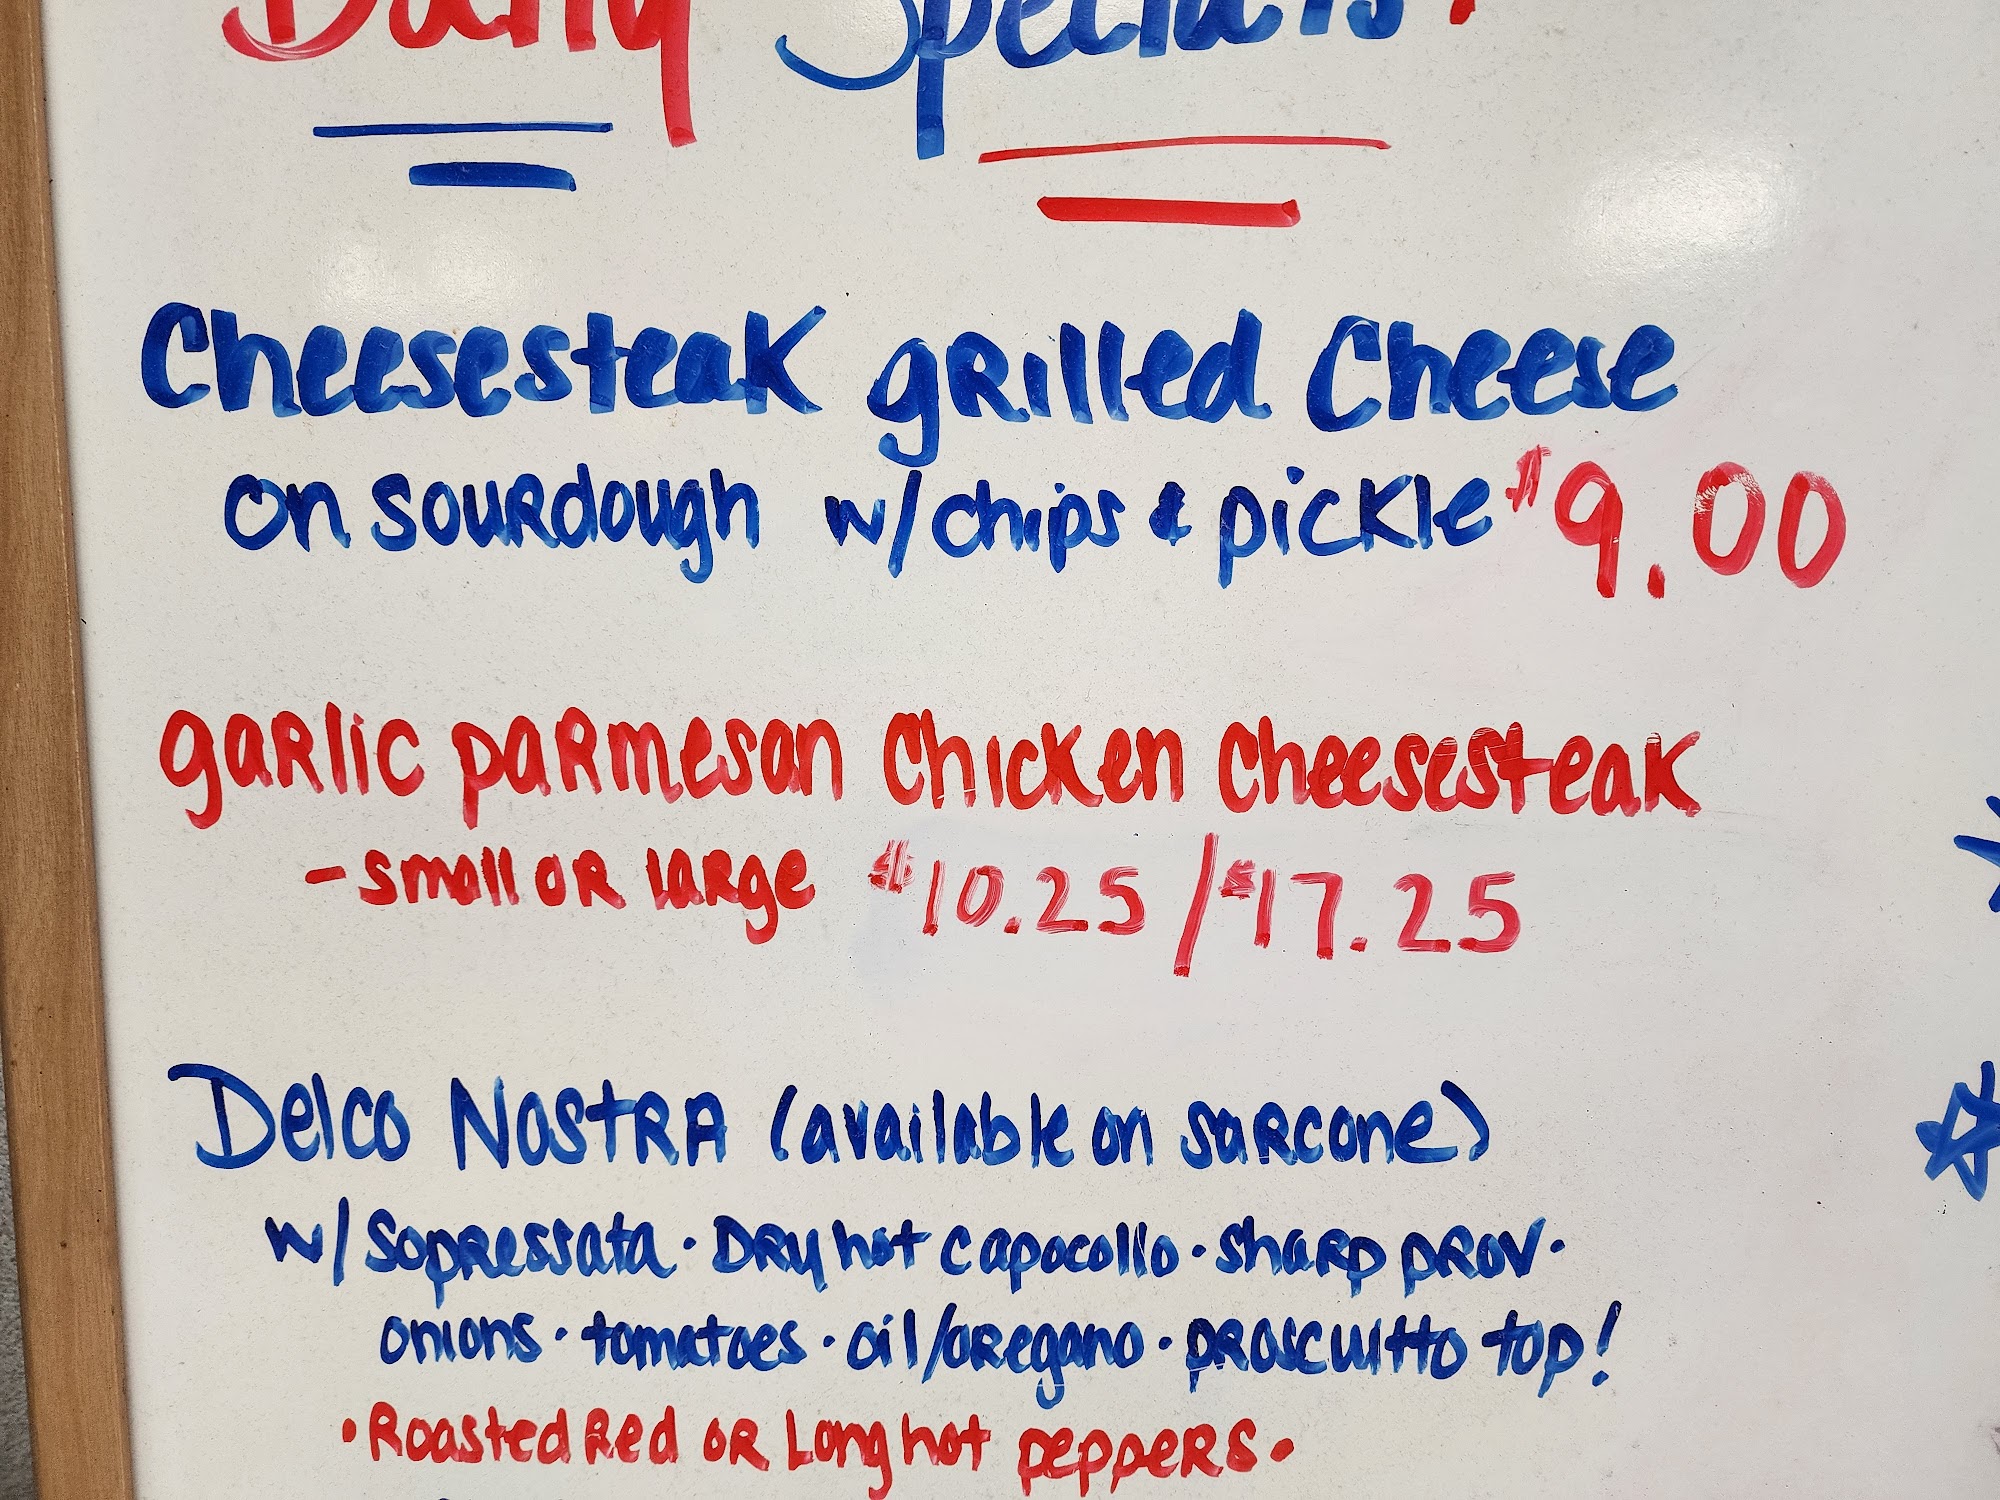 Daily Specials!
Cheesesteak grilled Cheese
on sourdough w/chips & pickle $9.00
garlic parmesan Chicken Cheesesteak
- small or large $10.25 / $17.25
Delco Nostra (available on sarcone)
w/ Sopressata · Dry hot capocollo · sharp prov ·
onions · tomatoes · oil/oregano · proscuitto top!
· Roasted Red or Long hot peppers ·